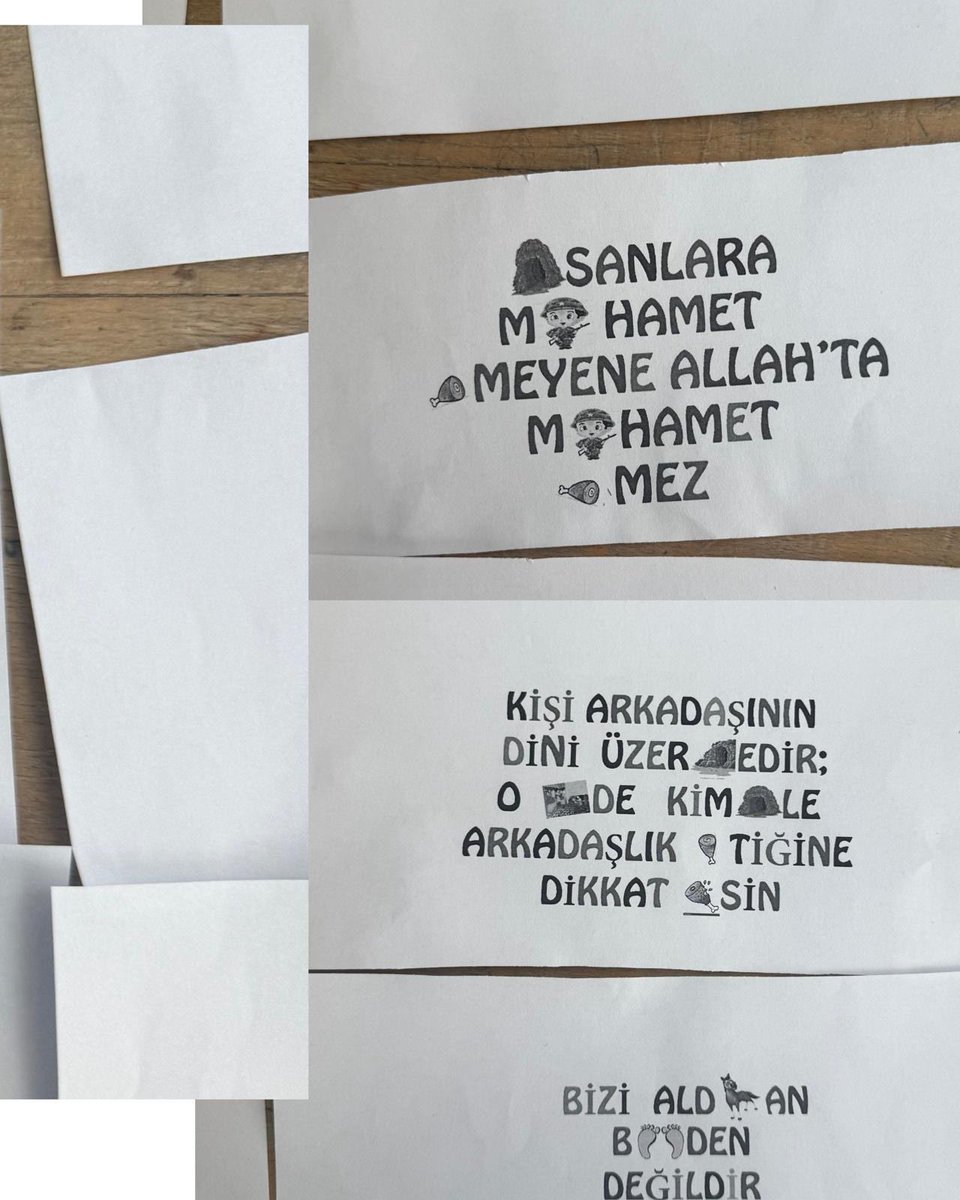 SANLARA
M HAMET
MEYENE ALLAH'TA
M HAMET
MEZ
KİŞİ ARKADAŞININ
DİNİ ÜZER EDİR;
O DE KİM LE
ARKADAŞLIK TİĞİNE
DİKKAT SİN
BİZİ ALD AN
B DEN
DEĞİLDİR